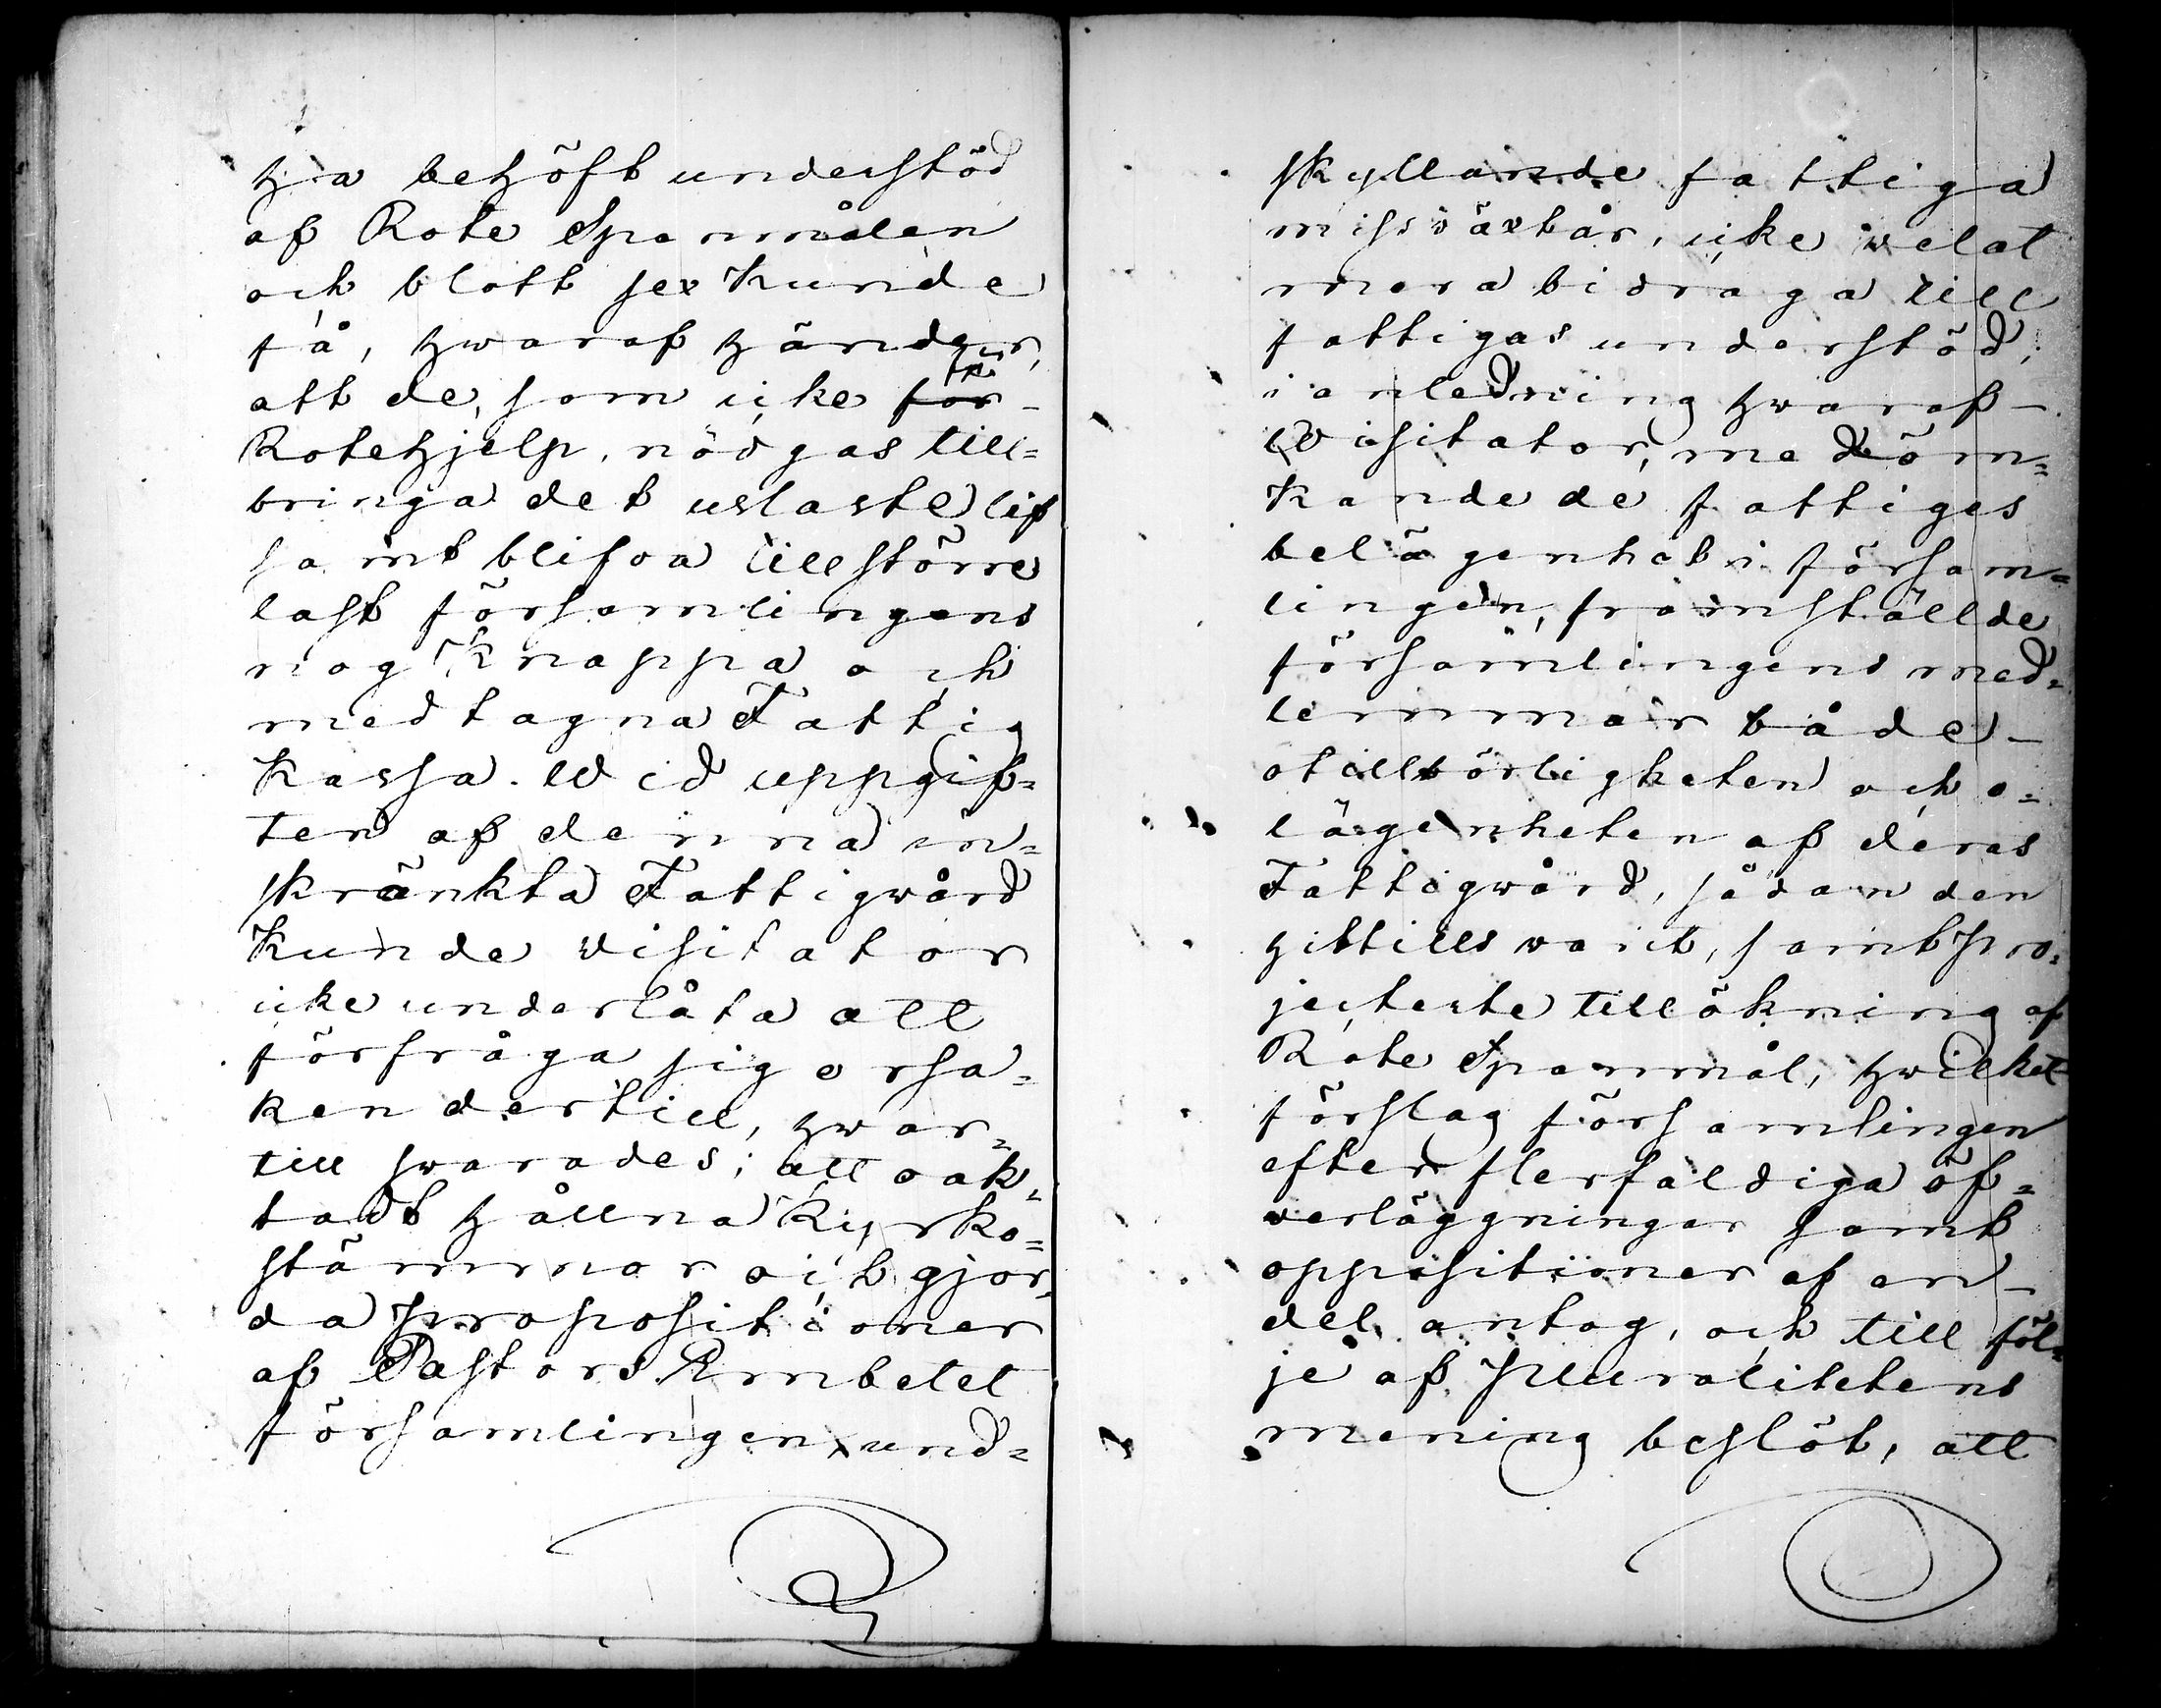 ha behöft understöd
af Rote Spanmålen
och blott sex kunde
få, hwaraf händer,
att de, som icke få
Rotehjelp, nödgas till=
bringa det uslaste lif
samt blifva till större
last församlingens
nog knappa och
medtagna Fattig
Kassa. Wid uppgif=
ten af denna in=
skränkta Fattigwård
kunde Visitator
icke underlåta att
förfråga sig orsa=
ken dertill, hwar=
till swarades; att oak=
tadt hållna Kyrko=
stämmor och gjor=
da propositioner
af Pastors Embetet
församlingen und=
skyllande fattiga
missväxtår, icke welat
mera bidraga till
fattigas understöd,
i anledning hwaraf -
Visitator, med öm=
kande de fattiges
belägenhet i församl=
lingen, framställde
församlingens med=
lemmar både -
otillbörligheten och o=
lägenheten af deras
Fattigwård, sådan den
hittills warit, samt pro=
jecterte tillökning af
Rote Spanmål, hwilket
förslag församlingen
efter flerfaldiga öf=
verläggningar samt
oppositioner af en -
del antog, och till föl=
je af pluralitetens
mening beslöt, att